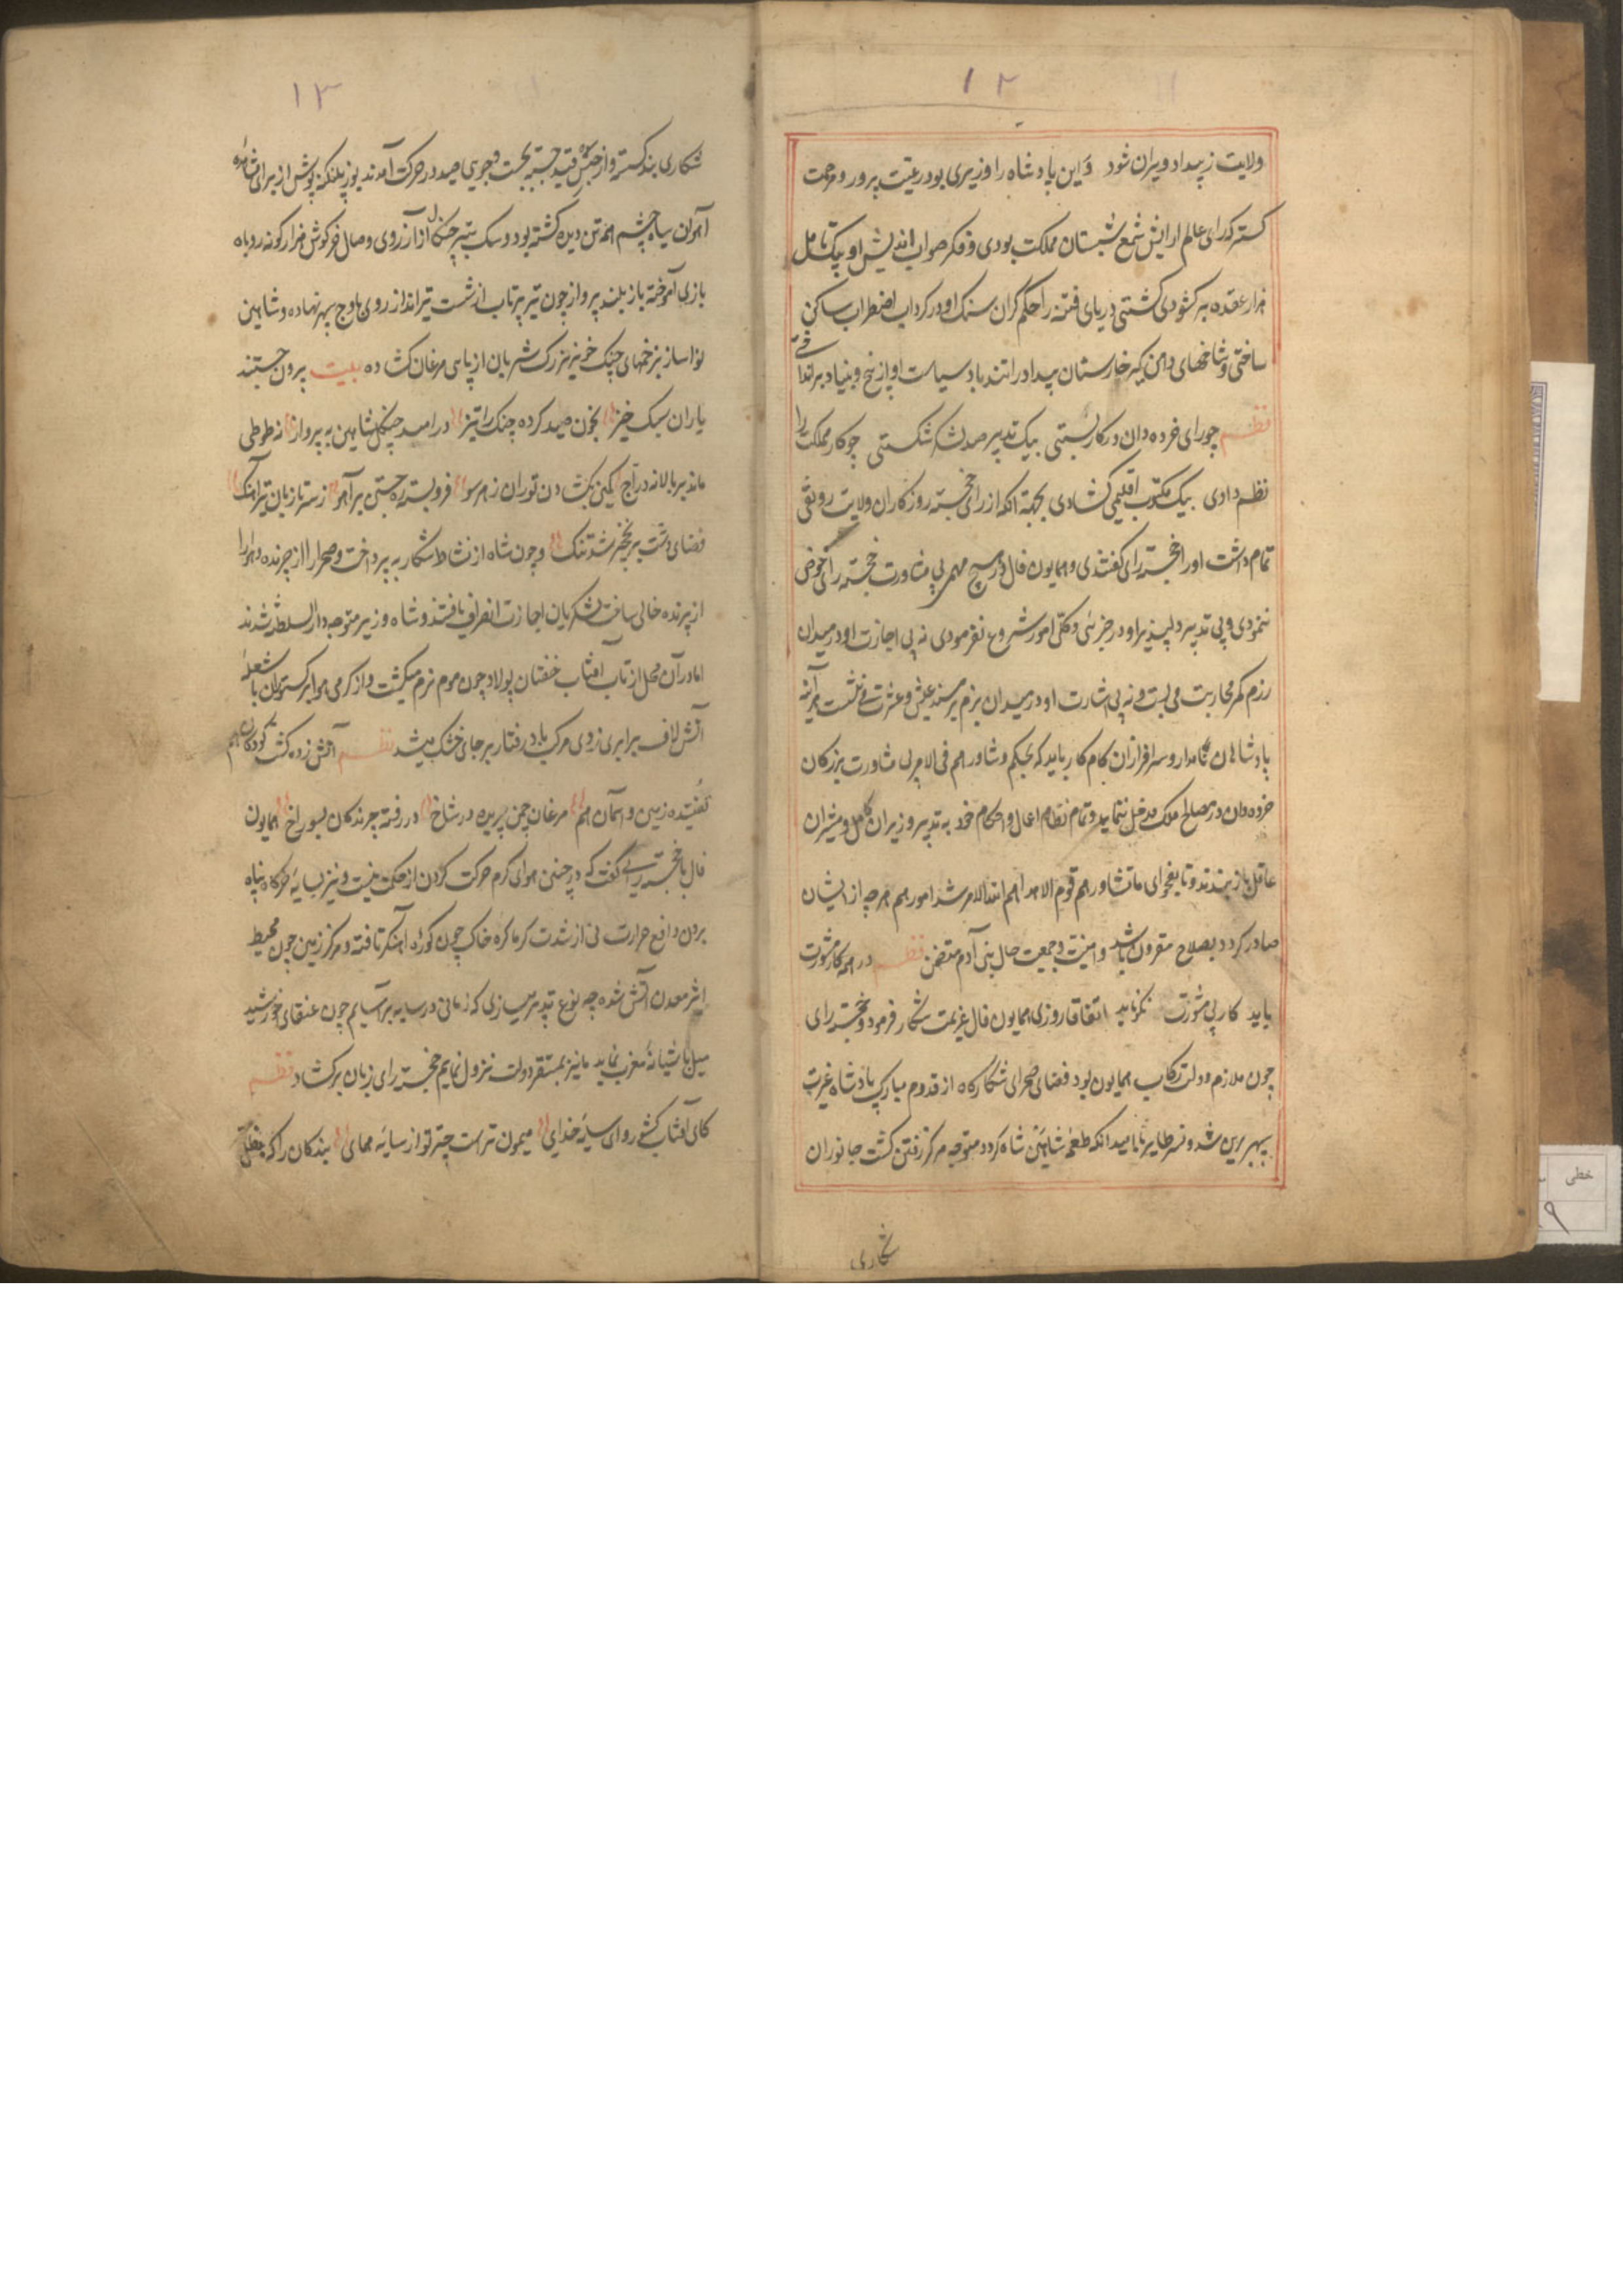 ۱۲
ولایت ز بیداد ویران شود وَاین پادشاه را وزیری بود رعیت پرور و مرحمت
کستر که رای عالم ارایش شمع شبستان مملکت بودی و فکر صواب اندیش او بیک تامل
هزار عقده بر کشودی کشتی دریای فتنه را حلم گران سنک او در کرداب اضطراب ساکن
ساختی و شاخهای دامن کیر خارستان بیداد را تند باد سیاست او از بیخ و بنیاد بر انداختی
نظم چو رای خرده دان در کار بستی بیک تدبیر صد لشکر شکستی چو کار مملکت را
نظم دادی بیک مکتوب اقلیمی کشادی بجهة انکه از رای خجسته روزکاران ولایت رونقی
تمام داشت او را خجسته رای کفتندی و همایون فال در هیچ مهمی بی مشاورت خجسته رای خوض
ننمودی و بی تدبیر دلپذیر او در جزئی و کلی امور شروع نفرمودی نه بی اجازت او در میدان
رزم کمر محاربت می بست و نه بی اشارت او در میدان بزم بر مسند عیش و عشرت می نشست هر آینه
پادشاهان نامدار و سرافرازان کامکار باید که بحکم و شاورهم فی الامر بی مشاورت بزرکان
خرده دان در مصالح ملک مدخل ننمایید و تمام نظام اعمال و احکام خود به تدبیر وزیران کامل و مشیران
عاقل باز بندند و تا بفحوای ما تشاور قوم الا هداهم الله لا مرشد امورهم هرچه از ایشان
صادر کردد بصلاح مقرون باشد و امنیت و جمعیت حال بنی آدم متضمن نظم در همه کار مشورت
باید کار بی مشورت نکو ناید اتفاقا روزی همایون فال عزیمت شکار فرمود و خجسته رای
چون ملازم و دولت رکاب همایون بود فضای صحرای شکارکاه از قدوم مبارک پادشاه غیرت
سپهر برین شد و نسر طایر بامید انکه طعمهٔ شاهین شاه کردد متوجه مرکز زمین کشت جانوران
شکاری
۱۳
شکاری بند کسسته و از حبس قید جسته بجست و جوی صید در حرکت آمدند یوز پلنکینه پوش از برای مشاهده
آهوان سیاه چشم همه تن دیده کشته بود و سک شیر چنکال از آرزوی وصال خرکوش هزار کونه روباه
بازی آموخته باز بلند پرواز چون تیر پرتاب از شست تیرانداز روی باوج سپهر نهاده و شاهین
نواساز بزخمهای چنک خونریز رک شریان از پای مرغان کشاده بیت برون جستند
یاران سبک خیز بخون صید کرده چنک را تیز درامد چنکل شاهین به پرواز نه طوطی
ماند بر بالا نه دراج کمین بکشادن توران ز هر سو فرو بسته ره جستن بر آهو ز سر تا زبان تیر آهنک
فضای دشت بر نخجیر شد تنک و چون شاه از نشاط شکار به پرداخت و صحرا را از چرنده و هوا را
از پرنده خالی ساخت لشکریان اجازت انصراف یافتند و شاه و وزیر متوجه دار السلطنه شدند
اما در آن محل از تاب آفتاب خفتان پولاد چون موم نرم میکشت و از کرمی هوا برکستوان با شعلهٔ
آتش لاف برابری زدی مرکب باد رفتار بر جای خشک میشد نظم آتش زده کشت کوه و کان هم
تفتیده زمین و آسمان هم مرغان چمن پریده در شاخ در رفته چرندکان بسوراخ همایون
فال با خجسته رای کفت که در چنین هوای کرم حرکت کردن از حکمت نیست و نیز بسایهٔ خرکاه پناه
بردن دافع حرارت نی از شدت کرما کره خاک چون کورهٔ آهنکر تافته و مرکز زمین چون محیط
اثیر معدن آتش شده چه نوع تدبیر میسازی که زمانی در سایه بر آساییم چون عنقای خورشید
میل باشیانهٔ مغرب نماید ما نیز بمستقر دولت نزول نمایم خجسته رای زبان برکشاد نظم
کای آفتاب کشور و ای سایهٔ خدای میمون تراست چتر تو از سایهٔ همای بندکان را که بظل